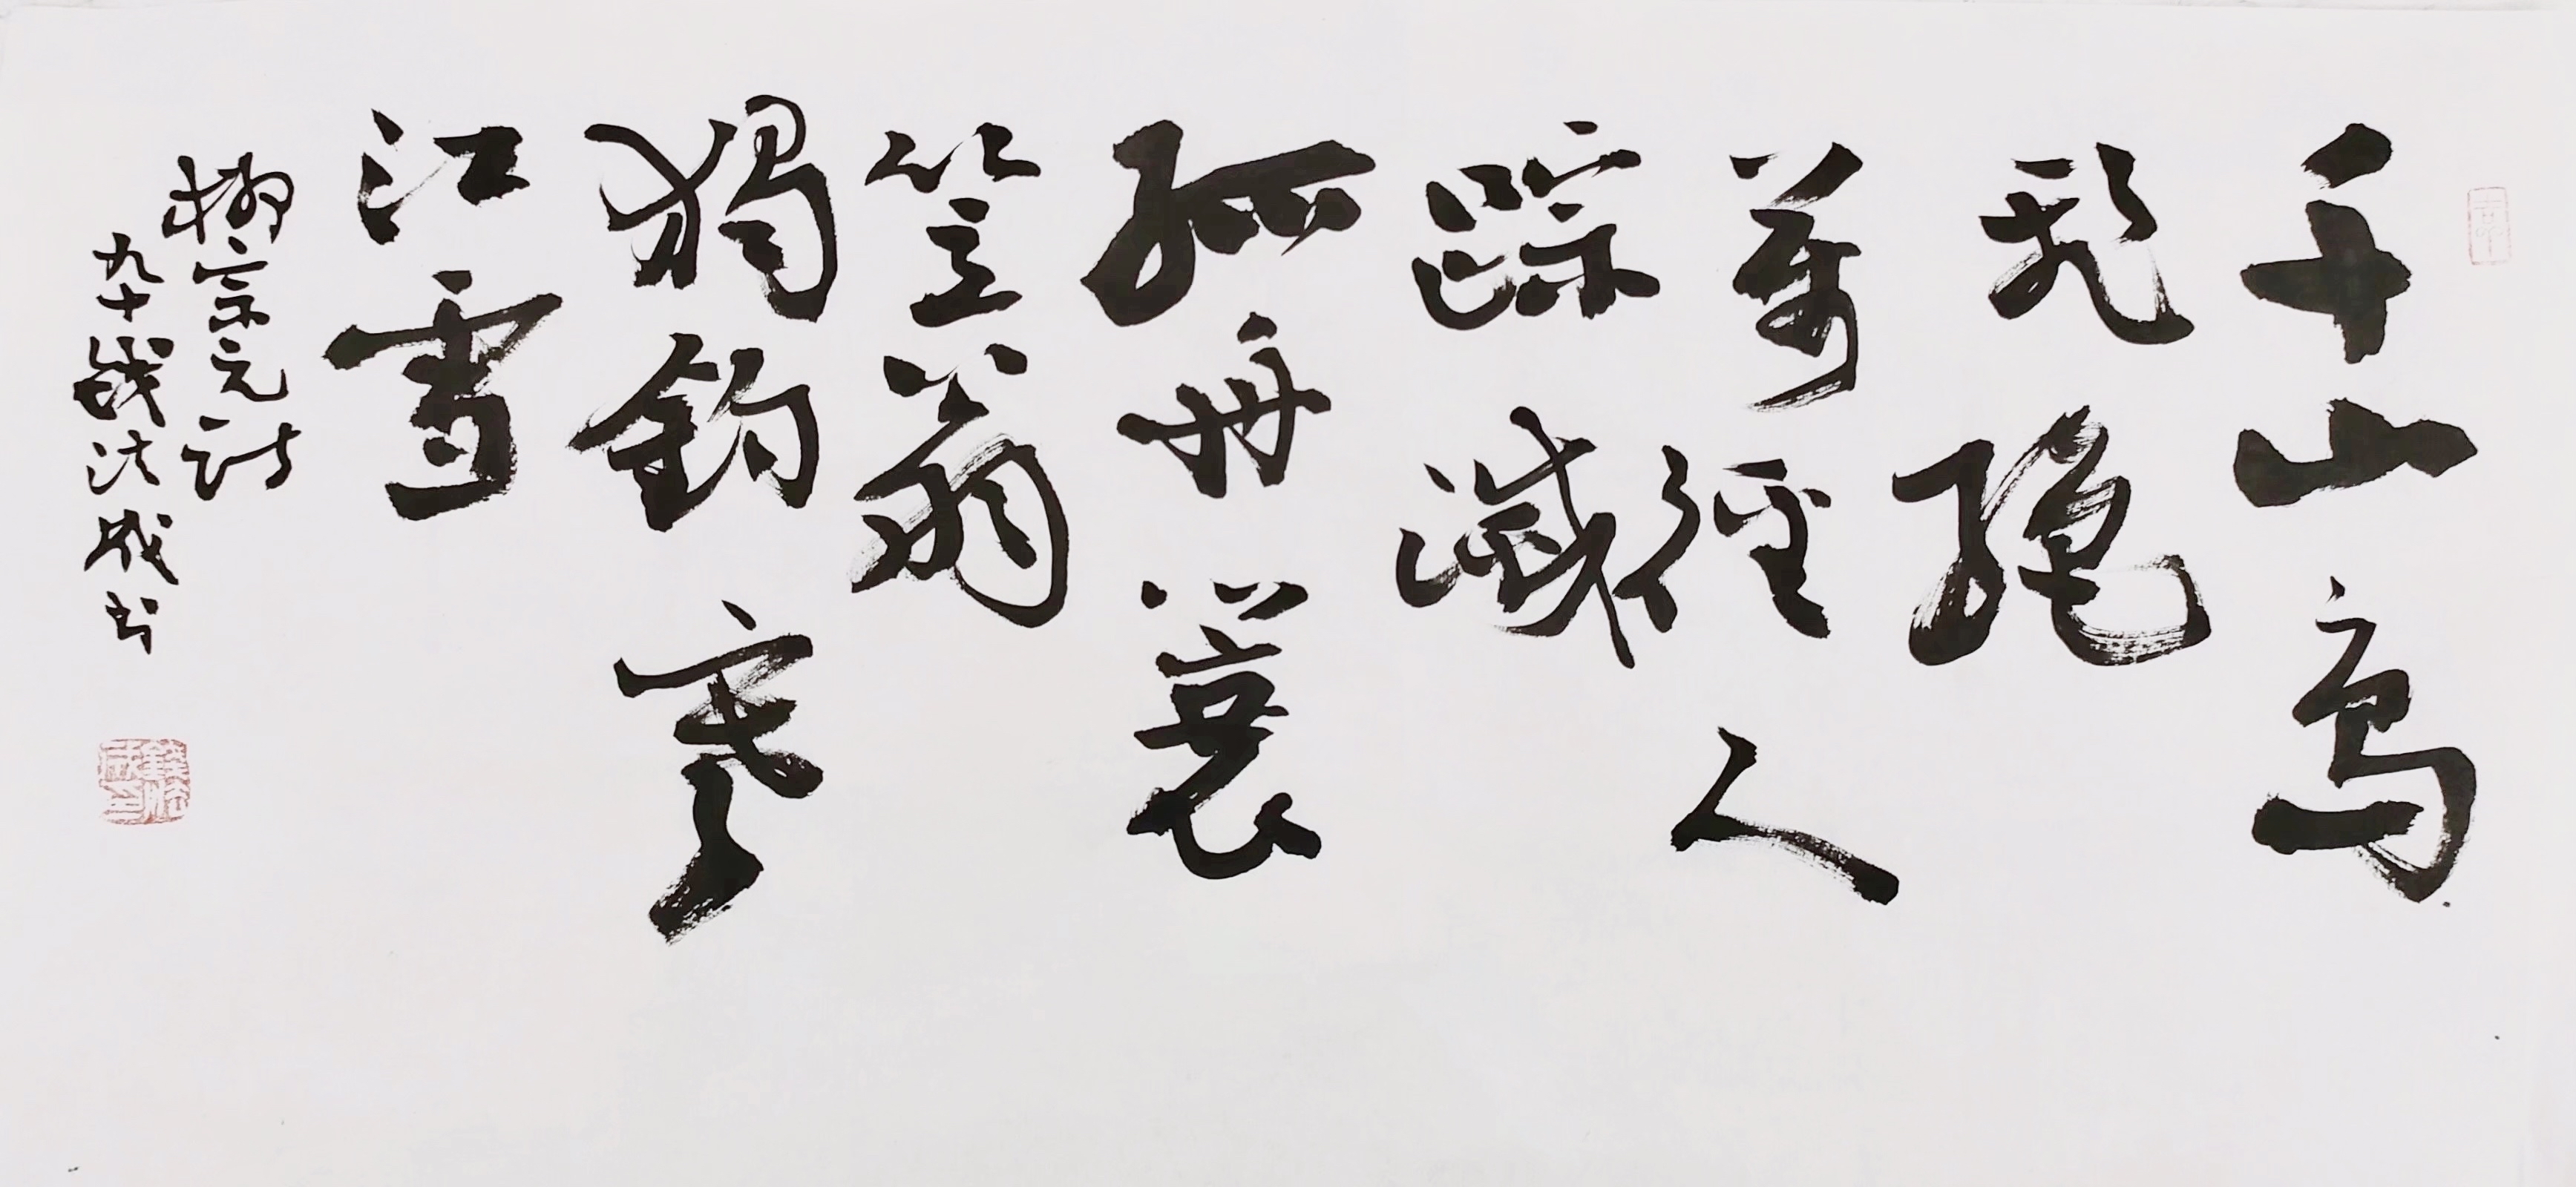 千山鳥
飛絕
萬徑人
踪滅
孤舟蓑
笠翁
獨釣寒
江雪
柳宗元詩
九十钱法成书
錢法成印